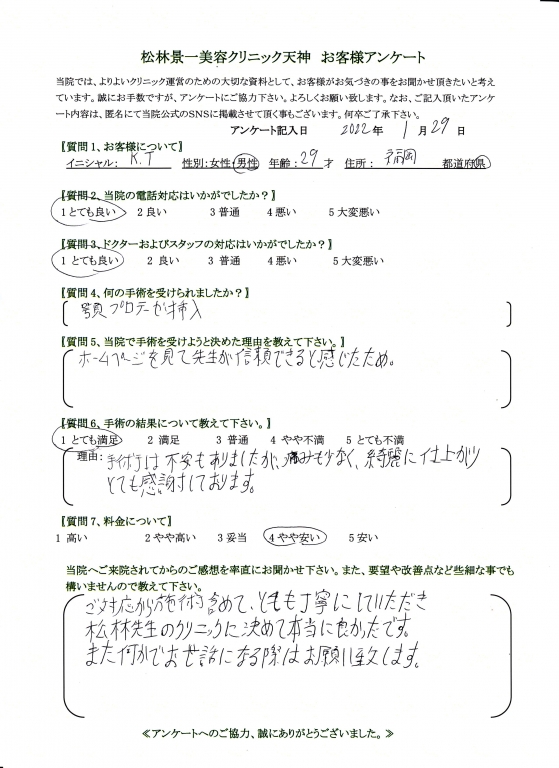 松林景一美容クリニック天神 お客様アンケート
当院では、よりよいクリニック運営のための大切な資料として、お客様がお気づきの事をお聞かせ頂きたいと考え
ています。誠にお手数ですが、アンケートにご協力下さい。よろしくお願い致します。なお、ご記入頂いたアンケ
ート内容は、匿名にて当院公式のSNSに掲載させて頂く事もございます。何卒ご了承下さい。
アンケート記入日 2022年 1月29日
【質問1、お客様について】
イニシャル: K.T 性別:女性・男性 年齢:29才 住所: 福岡 都道府県
【質問2、当院の電話対応はいかがでしたか?】
1 とても良い 2 良い 3 普通 4 悪い 5 大変悪い
【質問3、ドクターおよびスタッフの対応はいかがでしたか?】
1 とても良い 2 良い 3 普通 4 悪い 5 大変悪い
【質問4、何の手術を受けられましたか?】
額プロテーゼ挿入
【質問5、当院で手術を受けようと決めた理由を教えて下さい。】
ホームページを見て先生が信頼できると感じたため。
【質問6、手術の結果について教えて下さい。】
1 とても満足 2 満足 3 普通 4 やや不満 5 とても不満
理由: 手術は不安もありましたが、痛みも少なく、綺麗に仕上がり
とても感謝しております。
【質問7、料金について】
1 高い 2 やや高い 3 妥当 4 やや安い 5 安い
当院へご来院されてからのご感想を率直にお聞かせ下さい。また、要望や改善点など些細な事でも
構いませんので教えて下さい。
ご対応から施術含めて、とても丁寧にしていただき
松林先生のクリニックに決めて本当に良かったです。
また何かでお世話になる際はお願い致します。
≪アンケートへのご協力、誠にありがとうございました。≫